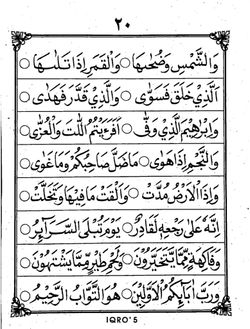 ٢٠
وَالشَّمْسِ وَضُحٰىهَا ○ وَالْقَمَرِ اِذَا تَلٰىهَا ○
اَلَّذِيْ خَلَقَ فَسَوّٰى ○ وَالَّذِيْ قَدَّرَ فَهَدٰى ○
وَاِبْرٰهِيْمَ الَّذِيْ وَفّٰى ○ اَفَرَءَيْتُمُ اللّٰتَ وَالْعُزّٰى ○
وَالنَّجْمِ اِذَا هَوٰى ○ مَا ضَلَّ صَاحِبُكُمْ وَمَا غَوٰى ○
وَاِذَا الْاَرْضُ مُدَّتْ ○ وَاَلْقَتْ مَا فِيْهَا وَتَخَلَّتْ ○
اِنَّهُ عَلٰى رَجْعِهِ لَقَادِرٌ ○ يَوْمَ تُبْلَى السَّرَآئِرُ ○
وَفَاكِهَةٍ مِمَّا يَتَخَيَّرُوْنَ ○ وَلَحْمِ طَيْرٍ مِمَّا يَشْتَهُوْنَ ○
وَرَبُّ اٰبَآئِكُمُ الْاَوَّلِيْنَ ○ هُوَ التَّوَّابُ الرَّحِيْمُ ○
IQRO' 5